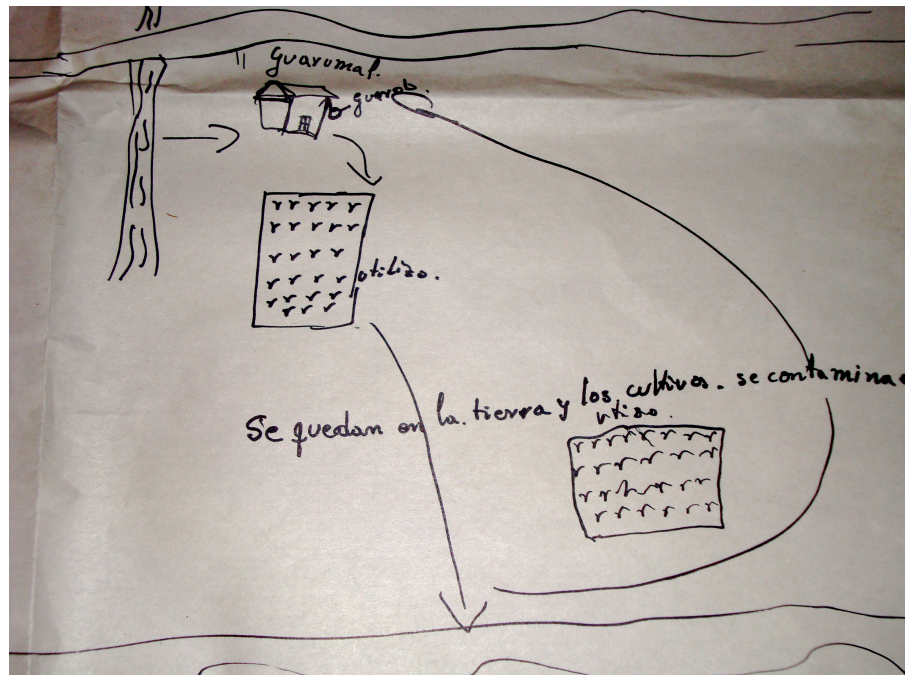 Guarumal.
utilizo.
Se quedan en la tierra y los cultivos. se contamina
utiso.